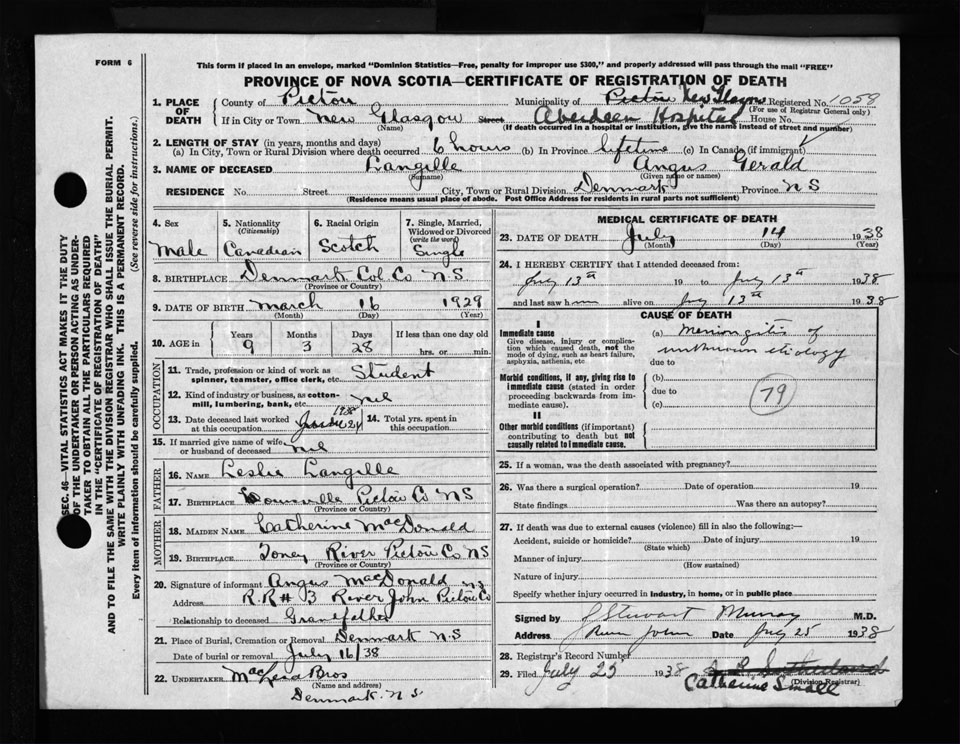 FORM 6
This form if placed in an envelope, marked "Dominion Statistics—Free, penalty for improper use $300," and properly addressed will pass through the mail "FREE"
PROVINCE OF NOVA SCOTIA—CERTIFICATE OF REGISTRATION OF DEATH
SEC. 46—VITAL STATISTICS ACT MAKES IT THE DUTY
OF THE UNDERTAKER OR PERSON ACTING AS UNDER-
TAKER TO OBTAIN ALL THE PARTICULARS REQUIRED
IN THE "CERTIFICATE OF REGISTRATION OF DEATH"
AND TO FILE THE SAME WITH THE DIVISION REGISTRAR WHO SHALL ISSUE THE BURIAL PERMIT.
WRITE PLAINLY WITH UNFADING INK. THIS IS A PERMANENT RECORD.
Every item of information should be carefully supplied. (See reverse side for instructions.)
1. PLACE OF DEATH County of Pictou Municipality of Pictou New Glasgow Registered No. 1058
(For use of Registrar General only)
If in City or Town New Glasgow Street Aberdeen Hospital House No.
(Name) (If death occurred in a hospital or institution, give the name instead of street and number)
2. LENGTH OF STAY (in years, months and days)
(a) In City, Town or Rural Division where death occurred 6 hours (b) In Province lifetime (c) In Canada (if immigrant)
3. NAME OF DECEASED Langille Angus Gerald
(Surname) (Given name or names)
RESIDENCE No. Street City, Town or Rural Division Denmark Province N S
(Residence means usual place of abode. Post Office Address for residents in rural parts not sufficient)
4. Sex 5. Nationality (Citizenship) 6. Racial Origin 7. Single, Married, Widowed or Divorced (write the word)
Male Canadian Scotch Single
8. BIRTHPLACE Denmark Col Co N S
(Province or Country)
9. DATE OF BIRTH March 16 1929
(Month) (Day) (Year)
10. AGE in Years Months Days If less than one day old
9 3 28 hrs. or min.
OCCUPATION
11. Trade, profession or kind of work as spinner, teamster, office clerk, etc. Student
12. Kind of industry or business, as cotton-mill, lumbering, bank, etc. nil
13. Date deceased last worked at this occupation 1938 14. Total yrs. spent in this occupation
15. If married give name of wife, or husband of deceased nil
FATHER
16. NAME Leslie Langille
17. BIRTHPLACE Pictou Co N S
(Province or Country)
MOTHER
18. MAIDEN NAME Catherine MacDonald
19. BIRTHPLACE Toney River Pictou Co NS
(Province or Country)
20. Signature of informant Angus MacDonald
Address R.R # 3 River John Pictou Co N S
Relationship to deceased Grandfather
21. Place of Burial, Cremation or Removal Denmark N S
Date of burial or removal July 16/38
22. UNDERTAKER Bros
(Name and address)
Denmark. N S
MEDICAL CERTIFICATE OF DEATH
23. DATE OF DEATH July 14 1938
(Month) (Day) (Year)
24. I HEREBY CERTIFY that I attended deceased from:
July 13th 19 to July 13th 1938
and last saw him alive on July 13th 1938
CAUSE OF DEATH
I
Immediate cause
Give disease, injury or complication which caused death, not the mode of dying, such as heart failure, asphyxia, asthenia, etc
(a) Meningitis of
unknown etiology
due to
Morbid conditions, if any, giving rise to immediate cause (stated in order proceeding backwards from immediate cause).
(b)
due to
(c)
79
II
Other morbid conditions (if important) contributing to death but not causally related to immediate cause.
25. If a woman, was the death associated with pregnancy?
26. Was there a surgical operation? Date of operation 19
State findings Was there an autopsy?
27. If death was due to external causes (violence) fill in also the following:—
Accident, suicide or homicide? Date of injury 19
(State which)
Manner of injury
(How sustained)
Nature of injury
Specify whether injury occurred in industry, in home, or in public place
Signed by J Stewart Murray M.D.
Address River John Date July 25 1938
28. Registrar's Record Number
29. Filed July 25 1938
Catherine Small
(Division Registrar)